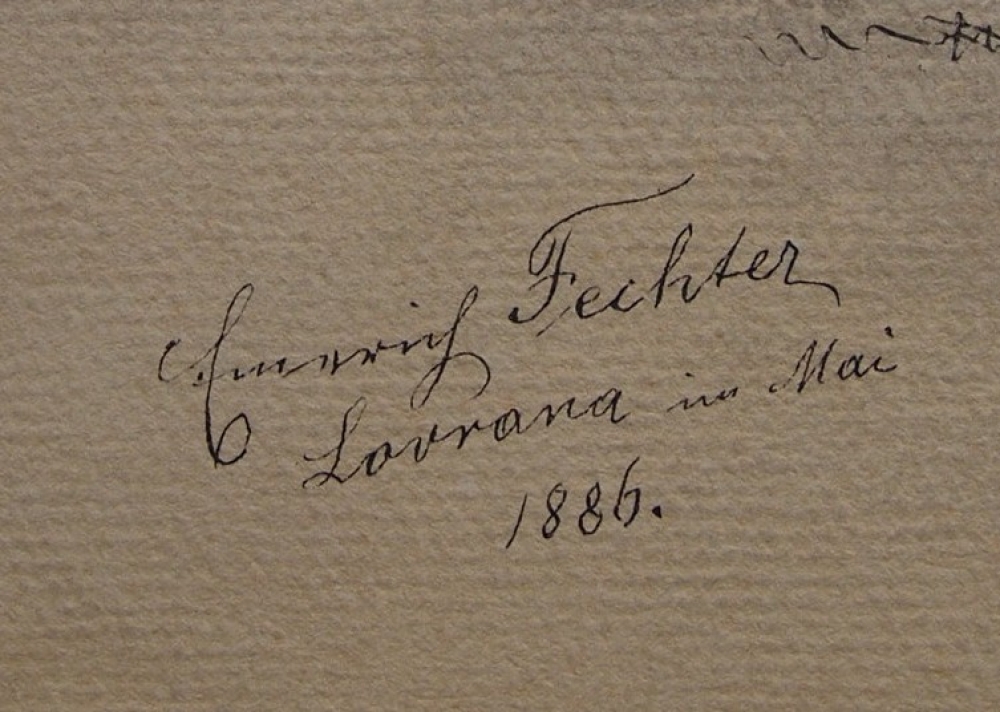 Emerich Fechter
Lovrana im Mai
1886.